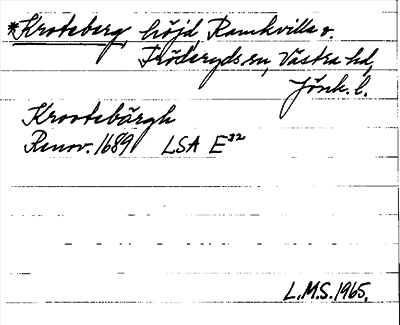 *Kroteberg, höjd, Ramkvilla o.
Fröderyds sn, Västra hd,
Jönk. l.
Krootebärgh
Renov. 1689 LSA E³²
L.M.S. 1965.